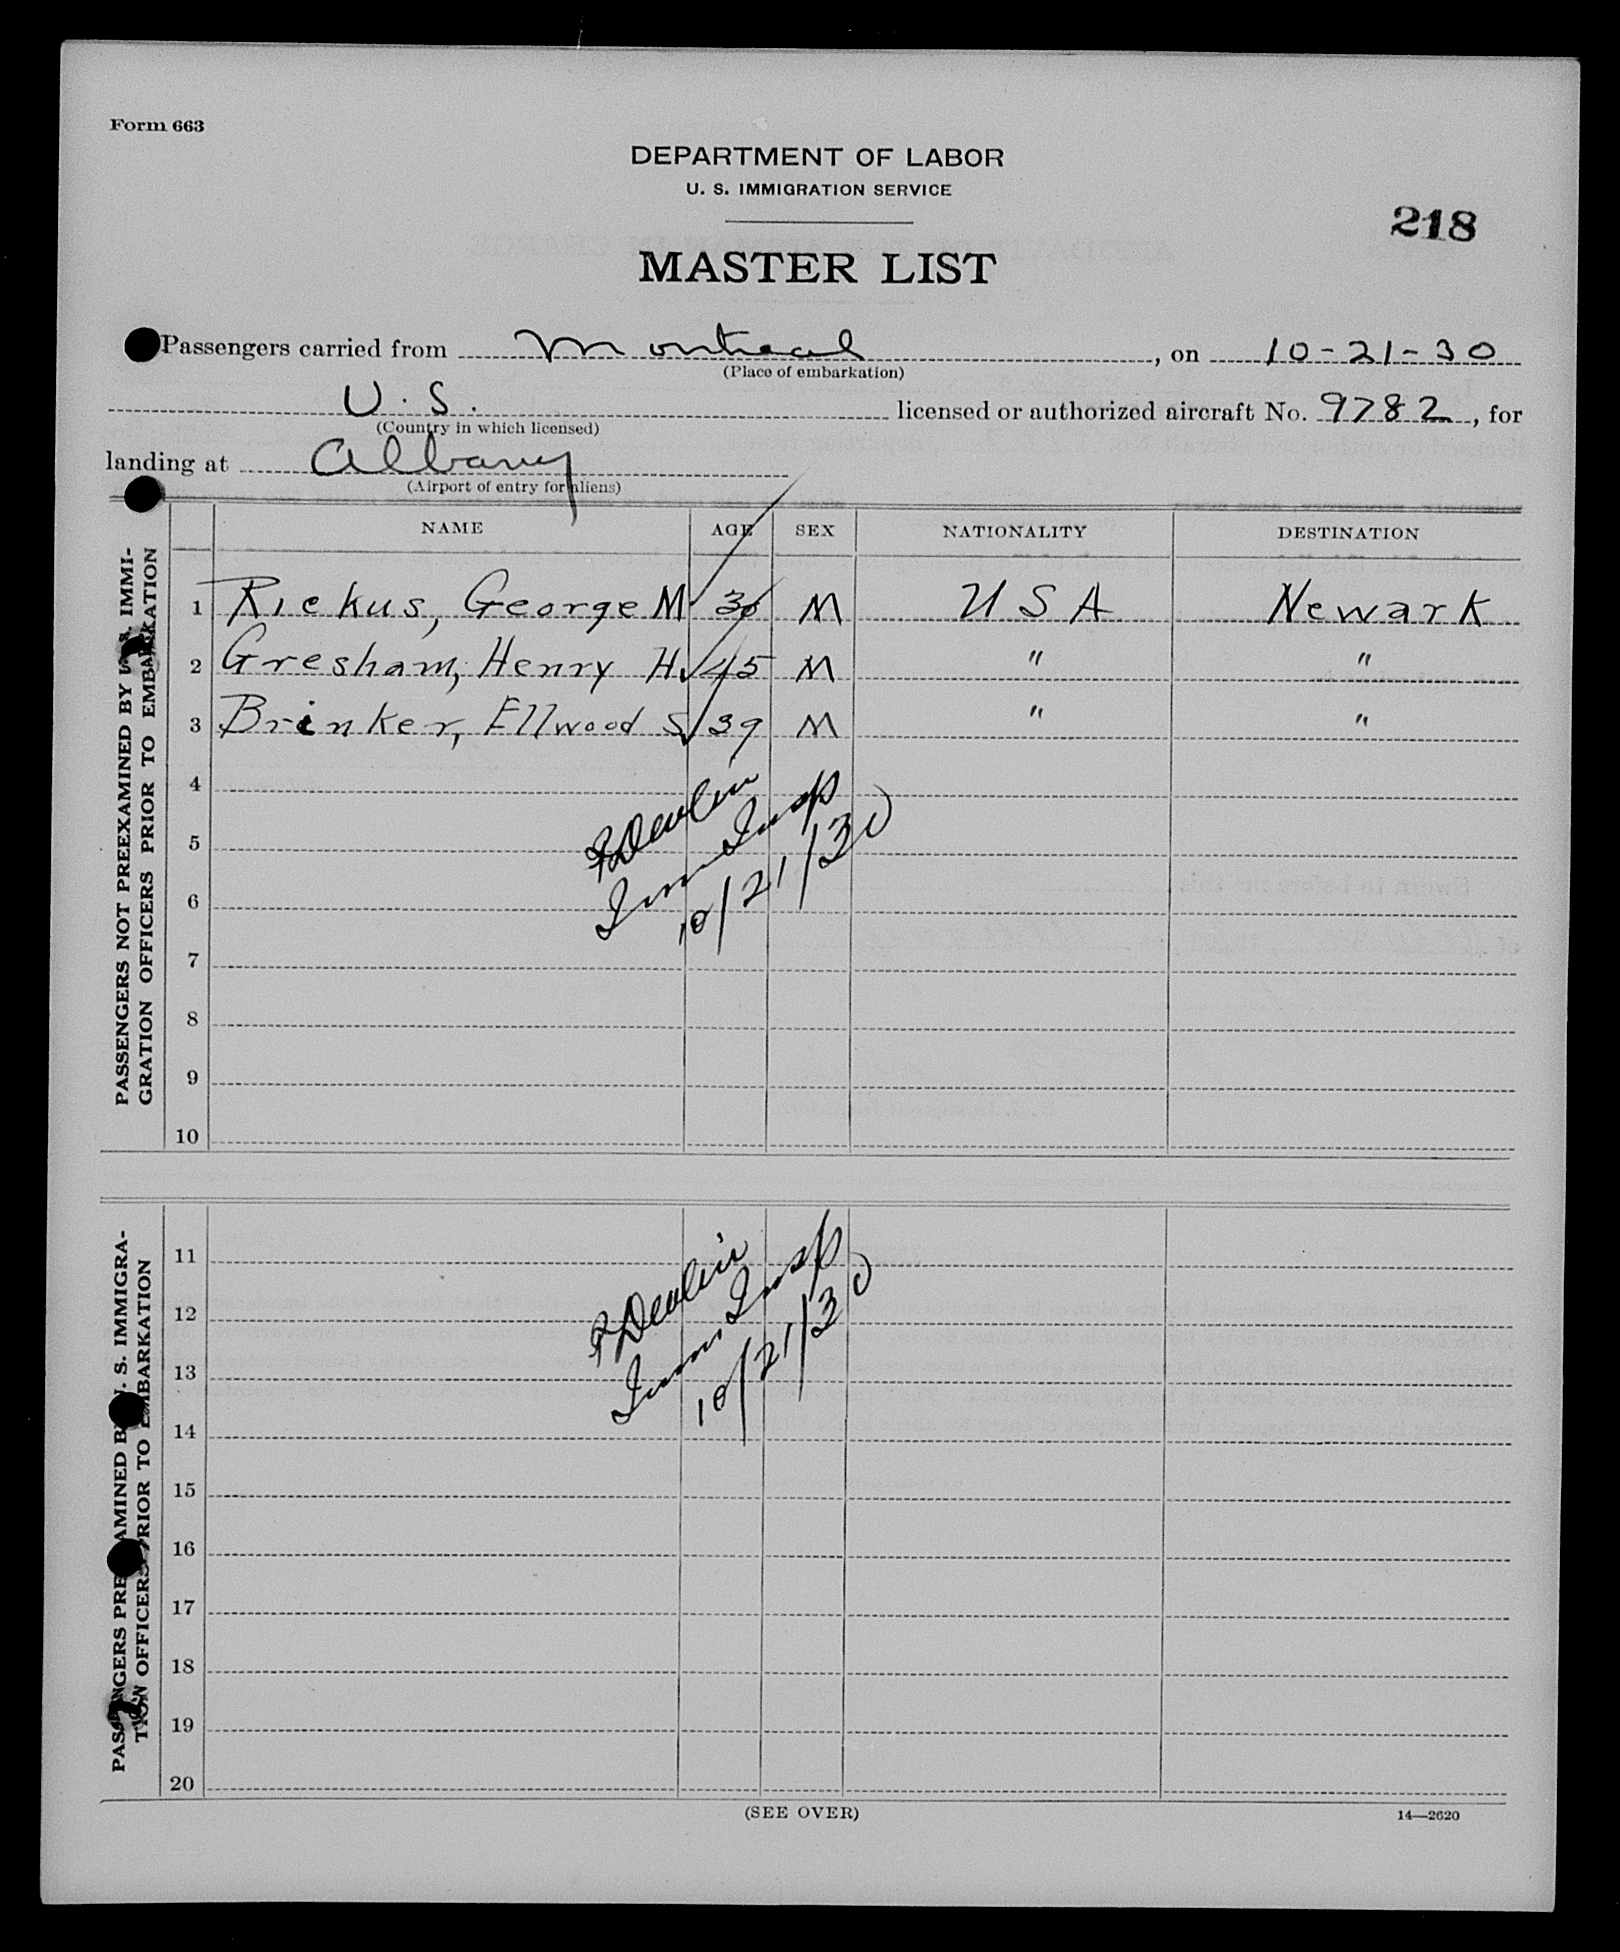 Form 663
DEPARTMENT OF LABOR
U. S. IMMIGRATION SERVICE
218
MASTER LIST
Passengers carried from Montreal, on 10-21-30
(Place of embarkation)
U.S. licensed or authorized aircraft No. 9782, for
(Country in which licensed)
landing at Albany
(Airport of entry for aliens)
NAME AGE SEX NATIONALITY DESTINATION
PASSENGERS NOT PREEXAMINED BY U. S. IMMI-
GRATION OFFICERS PRIOR TO EMBARKATION
1 Rickus, George M 30 M USA Newark
2 Gresham, Henry H. 45 M " "
3 Brinker, Ellwood S 39 M " "
4
5
6
7
8
9
10
Devlin
Imm Insp
10/21/30
PASSENGERS PREEXAMINED BY U. S. IMMIGRA-
TION OFFICERS PRIOR TO EMBARKATION
11
12
13
14
15
16
17
18
19
20
Devlin
Imm Insp
10/21/30
(SEE OVER)
14—2620